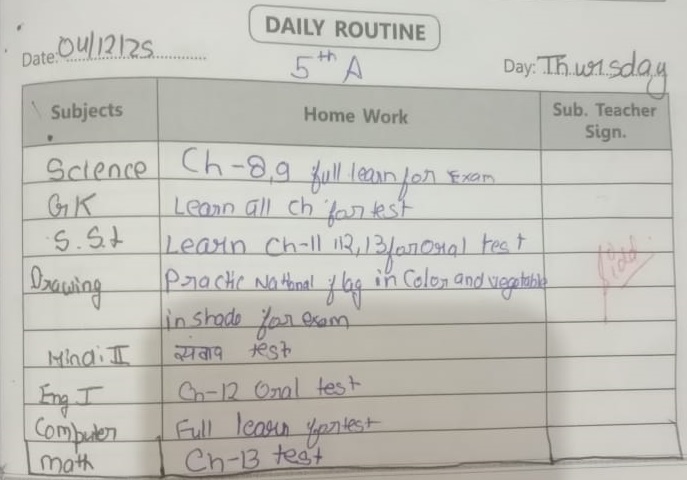 DAILY ROUTINE
Date: 04/12/25
5th A
Day: Thursday
Subjects Home Work Sub. Teacher Sign.
Science Ch-8,9 full learn for Exam
GK Learn all ch for test
S.St Learn Ch-11 12,13 for oral test
Drawing Practic National flag in Color and vegetable
in shade for exam
Hindi II संवाद test
Eng I Ch-12 Oral test
Computer Full learn for test
math Ch-13 test